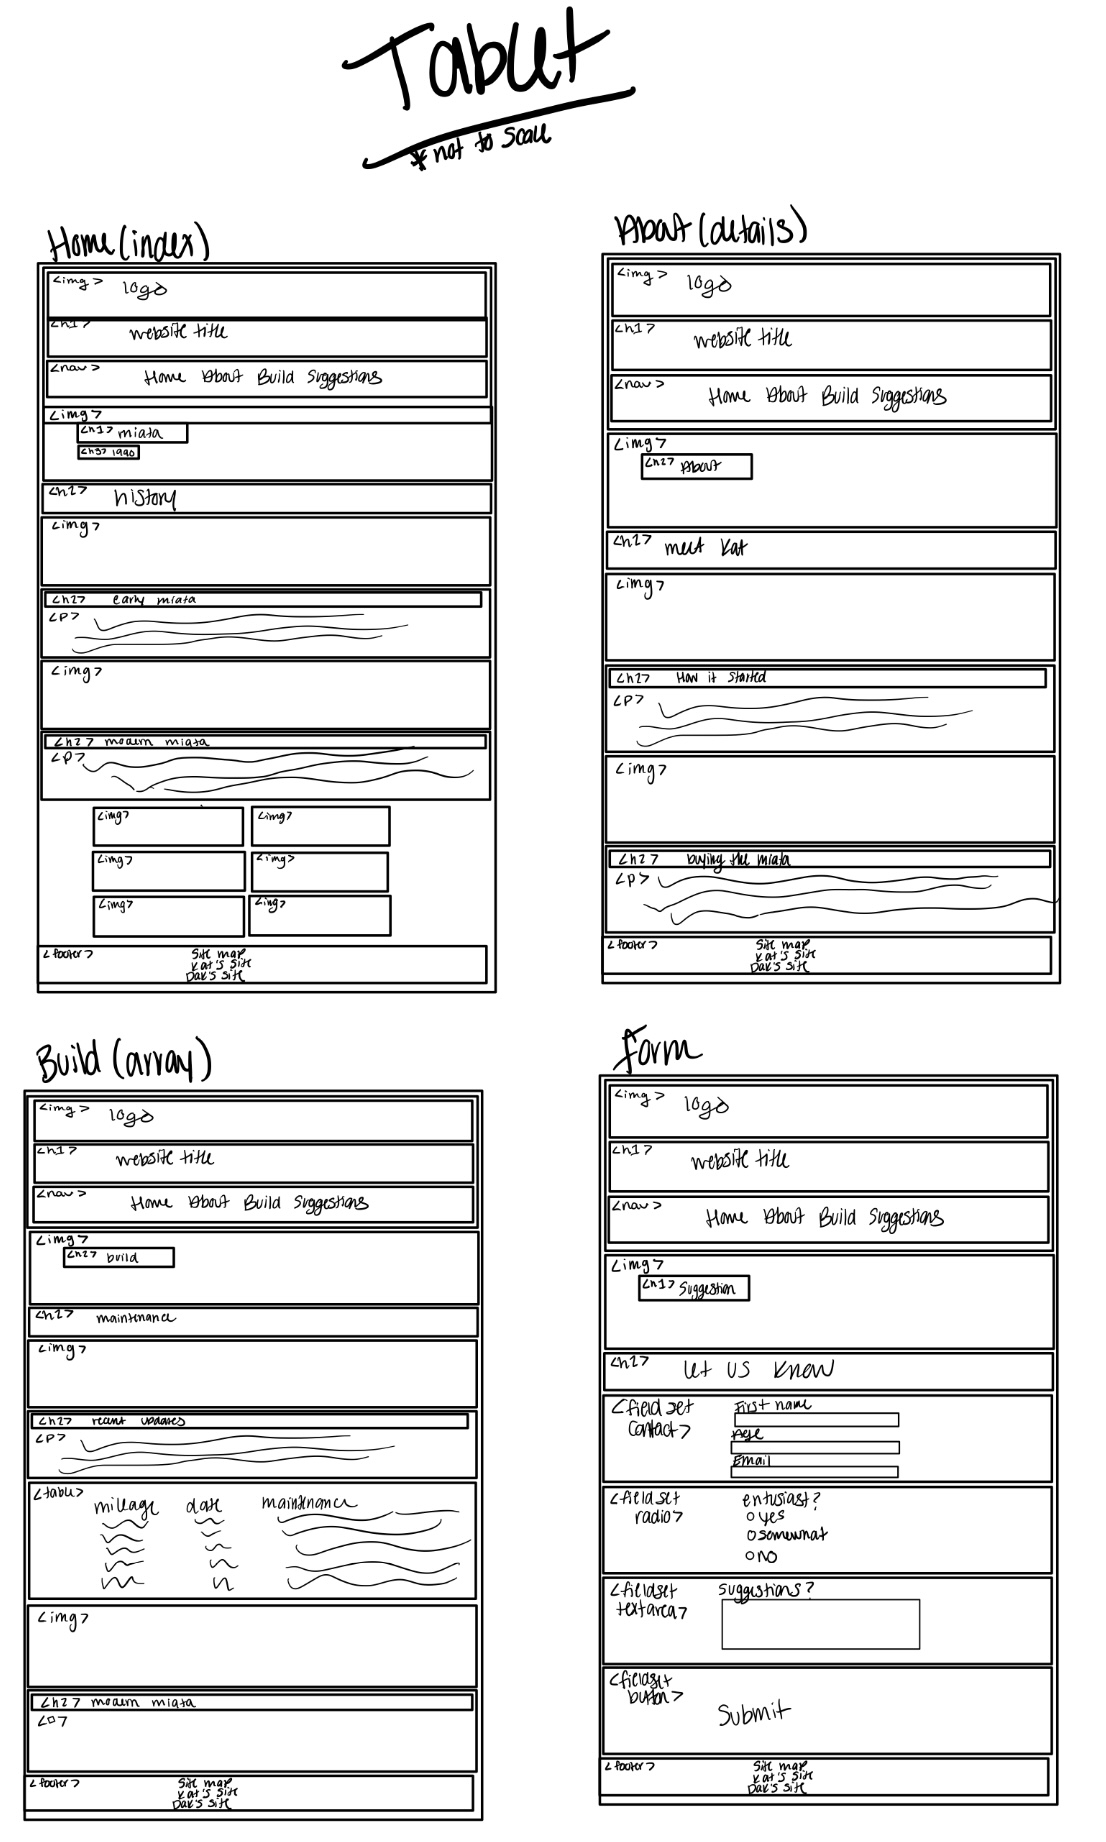 Tablet
*not to scale
Home (index)
<img> logo
<h1> website title
<nav> Home About Build Suggestions
<img>
<h1> miata
<h3> 1990
<h2> history
<img>
<h2> early miata
<p>
<img>
<h2> modern miata
<p>
<img> <img>
<img> <img>
<img> <img>
<footer> Site map
Kat's Site
Dak's Site
About (details)
<img> logo
<h1> website title
<nav> Home About Build Suggestions
<img>
<h2> About
<h2> meet Kat
<img>
<h2> How it started
<p>
<img>
<h2> buying the miata
<p>
<footer> Site map
Kat's Site
Dak's Site
Build (array)
<img> logo
<h1> website title
<nav> Home About Build Suggestions
<img>
<h2> build
<h2> maintenance
<img>
<h2> recent updates
<p>
<table> mileage date maintenance
<img>
<h2> modern miata
<p>
<footer> Site map
Kat's Site
Dak's Site
form
<img> logo
<h1> website title
<nav> Home About Build Suggestions
<img>
<h1> Suggestion
<h2> let us know
<fieldset First name
contact> Age
Email
<fieldset entusiast?
radio> yes
somewhat
no
<fieldset suggestions?
textarea>
<fieldset
button> Submit
<footer> Site map
Kat's Site
Dak's Site